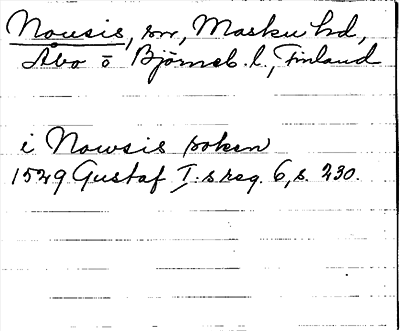 Nousis, sn, Masku hd,
Åbo o Björneb. l., Finland
i Nowsis soken
1529 Gustaf I:s reg. 6, s. 230.